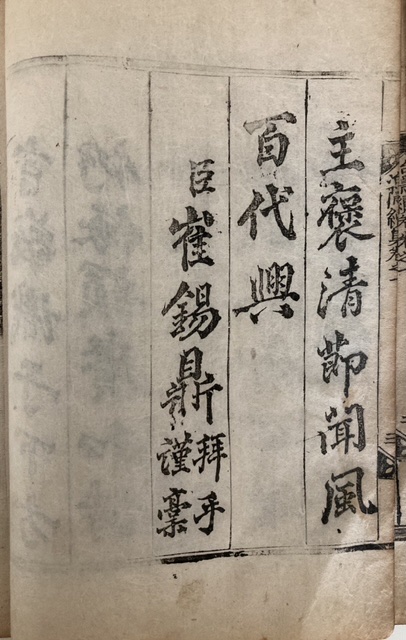 主褒清莭聞風
百代興
臣崔錫鼎拜手謹稾